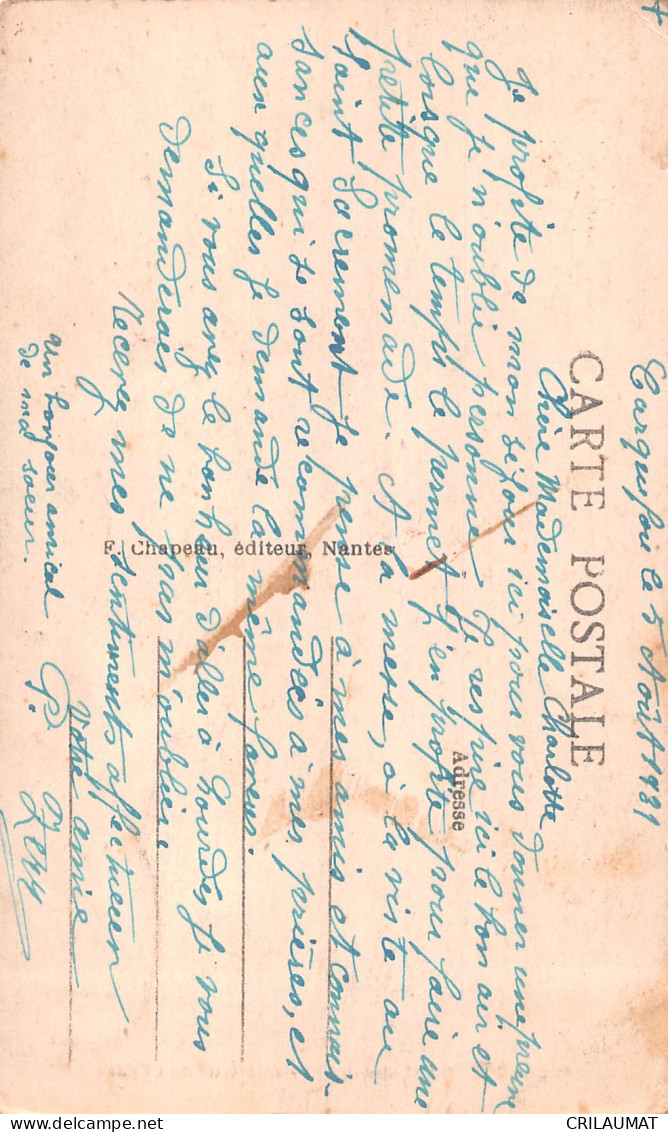 +
Carquefou le 5 Août 1931
CARTE POSTALE
Chère Mademoiselle Charlotte
Je profite de mon séjour ici pour vous donner une preuve
que je n'oublie personne. Je respire ici le bon air et
lorsque le temps le permet j'en profite pour faire une
Adresse
petite promenade. A la messe, à la visite au
Saint Sacrement je pense à mes amis et connais-
sances qui se sont recommandées à mes prières, et
aux quelles je demande la même faveur.
F. Chapeau, éditeur, Nantes
Si vous avez le bonheur d'aller à Lourdes je vous
demanderais de ne pas m'oublier
Recevez mes sentiments affectueux
Votre amie
P.
Un bonjour amical
de ma soeur.
delcampe.net
CRILAUMAT